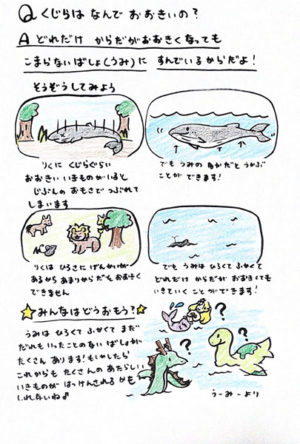 Q くじらは なんで おおきいの?
A どれだけ からだがおおきくなっても
こまらないばしょ(うみ)に すんでいるからだよ!
そうぞうしてみよう
りくに くじらぐらい
おおきい いきものが いると
じぶんの おもさで つぶれて
しまいます
でも うみの なかだと うかぶ
ことが できます!
りくは ひろさに げんかいが
あるから あまりからだも おおきく
できません
でも うみは ひろくて ふかくて
どれだけ からだが おおきくても
いきていく ことが できます!
みんなはどうおもう?
うみは ひろくて ふかくて まだ
だれも いったことの ない ばしょが
たくさん あります! もしかしたら
これからも たくさんの あたらしい
いきものが はっけんされる かも
しれないね♪
? ? ? ?
うーみーより